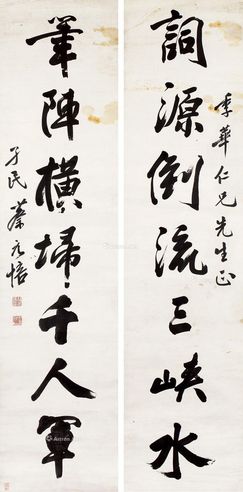 詞源倒流三峽水
季華仁兄先生正
筆陣橫掃千人軍
孑民蔡元培